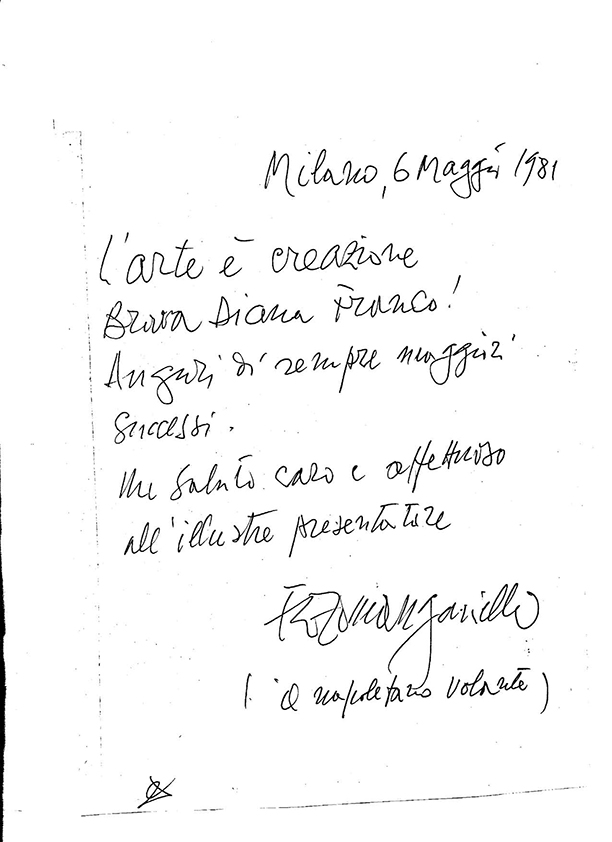 Milano, 6 Maggio 1981
L'arte è creazione
Brava Diana Franco!
Auguri di sempre maggiori
successi.
Un saluto caro e affettuoso
all'illustre presentatore
(il napoletano volante)